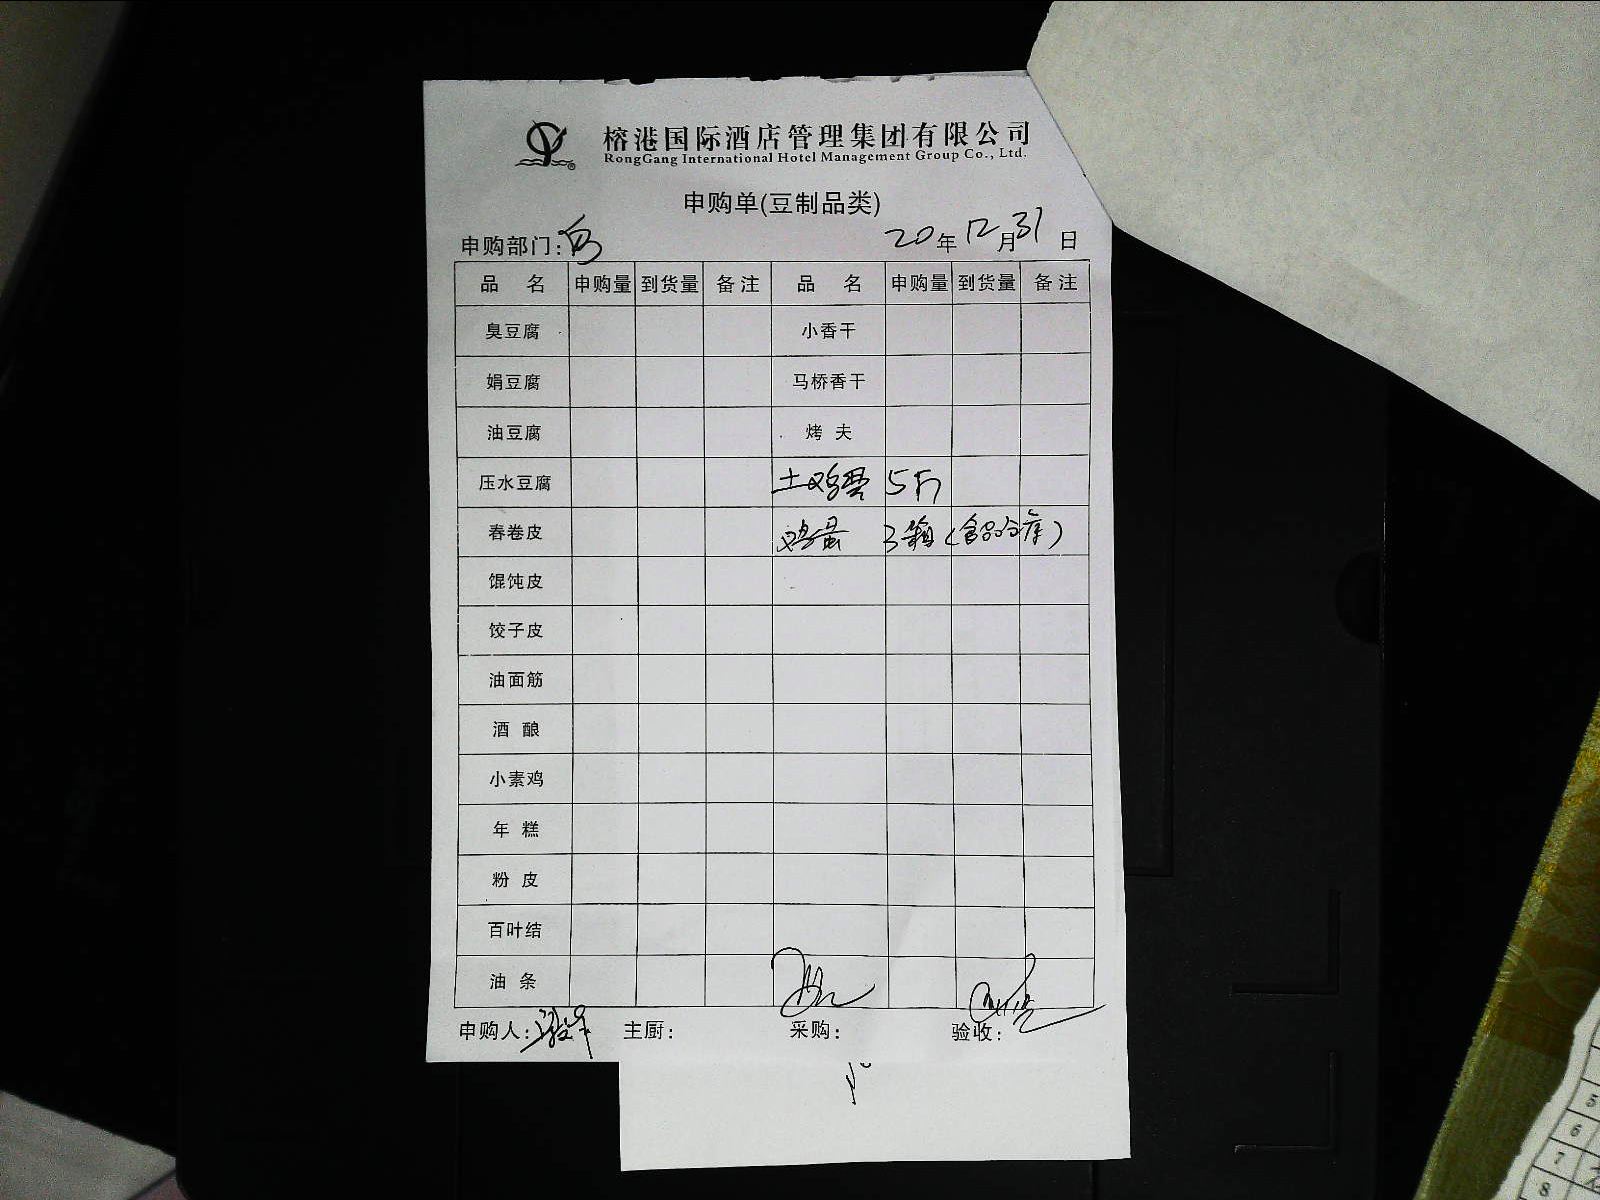 榕港国际酒店管理集团有限公司
RongGang International Hotel Management Group Co., Ltd.
申购单(豆制品类)
申购部门: 20年12月31日
品 名 申购量 到货量 备注 品 名 申购量 到货量 备注
臭豆腐 小香干
娟豆腐 马桥香干
油豆腐 烤 夫
压水豆腐 土鸡蛋 5斤
春卷皮 鸡蛋 3箱(食品仓库)
馄饨皮
饺子皮
油面筋
酒 酿
小素鸡
年 糕
粉 皮
百叶结
油 条
申购人: 主厨: 采购: 验收:
5
6
7
8